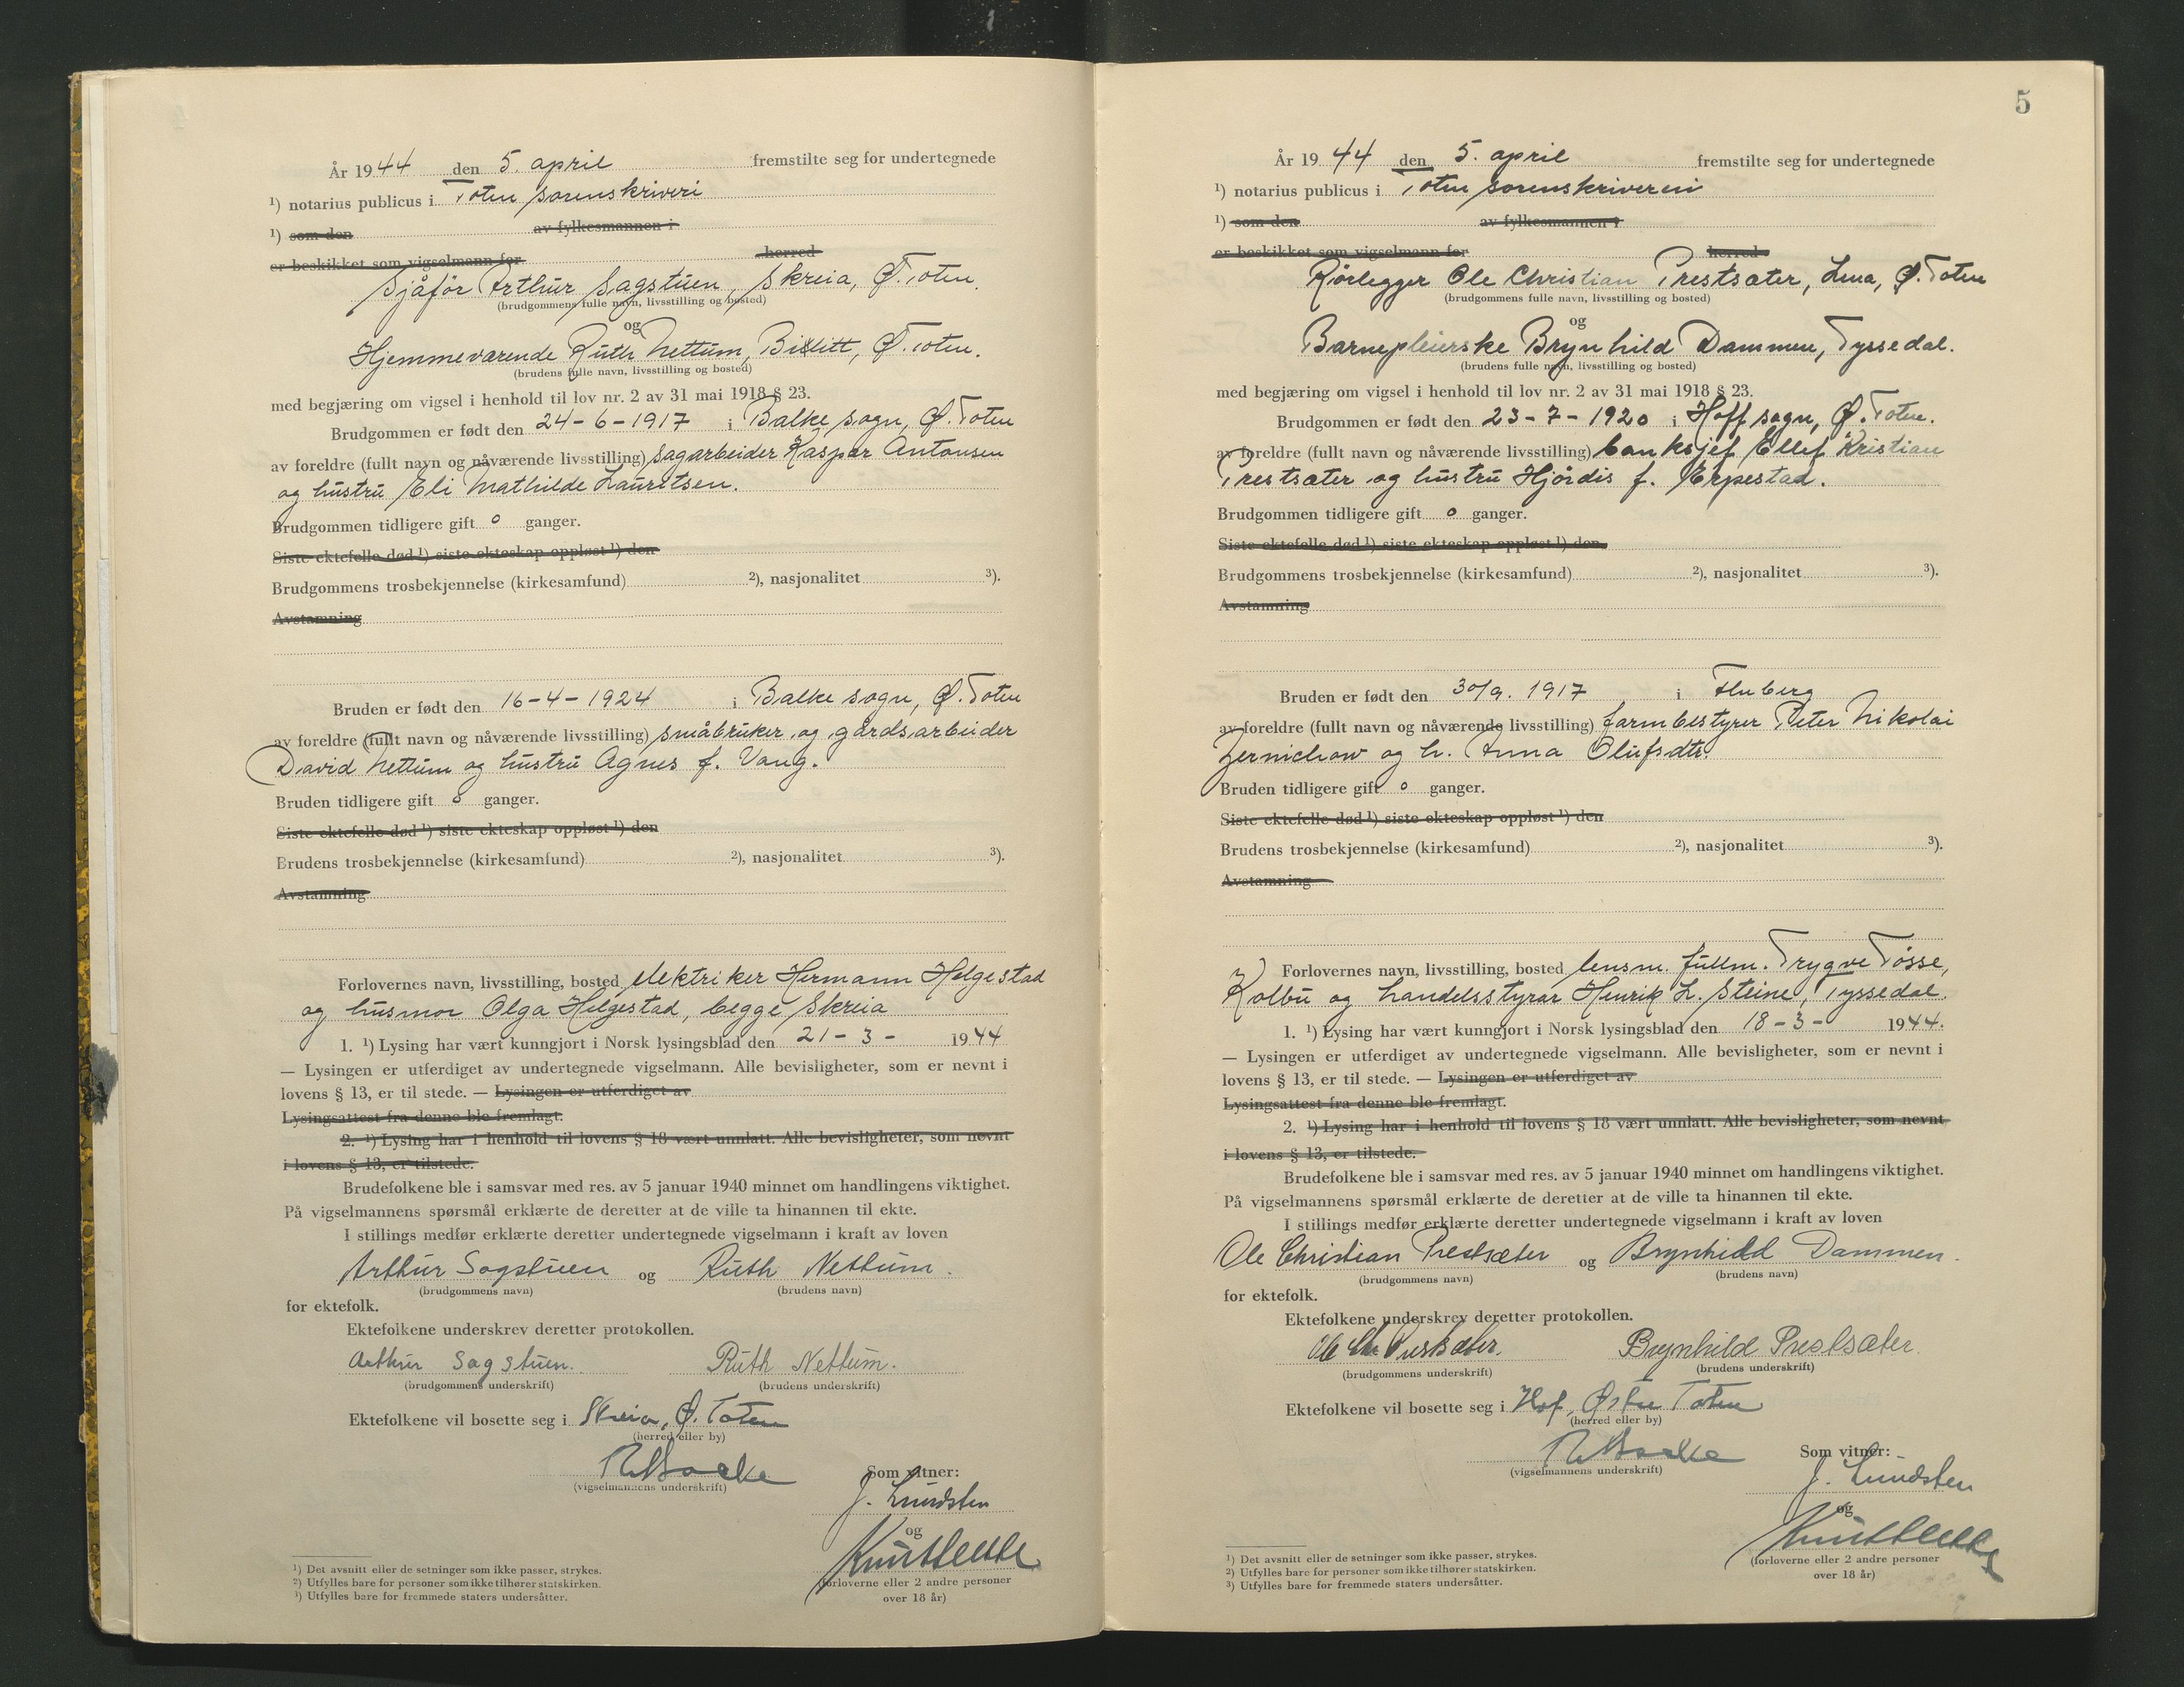 År 1944 den 5. april fremstilte seg for undertegnede
¹) notarius publicus i Toten sorenskriveri
¹) som den av fylkesmannen i
er beskikket som vigselmann for herred
Sjåfør Arthur Sagstuen, Skreia, Ø. Toten.
(brudgommens fulle navn, livsstilling og bosted)
og
Hjemmeværende Ruth Nettum, Bilitt, Ø. Toten.
(brudens fulle navn, livsstilling og bosted)
med begjæring om vigsel i henhold til lov nr. 2 av 31 mai 1918 § 23.
Brudgommen er født den 24-6-1917 i Balke sogn, Ø. Toten
av foreldre (fullt navn og nåværende livsstilling) sagarbeider Kaspar Antonsen
og hustru Eli Mathilde Lauritsen.
Brudgommen tidligere gift 0 ganger.
Siste ektefelle død ¹) siste ekteskap oppløst ¹) den
Brudgommens trosbekjennelse (kirkesamfund) ²), nasjonalitet ³).
Avstamning
Bruden er født den 16-4-1924 i Balke sogn, Ø. Toten
av foreldre (fullt navn og nåværende livsstilling) småbruker og gårdsarbeider
David Nettum og hustru Agnes f. Vang.
Bruden tidligere gift 0 ganger.
Siste ektefelle død ¹) siste ekteskap oppløst ¹) den
Brudens trosbekjennelse (kirkesamfund) ²), nasjonalitet ³).
Avstamning
Forlovernes navn, livsstilling, bosted elektriker Hermann Helgestad
og husmor Olga Helgestad, begge Skreia
1. ¹) Lysing har vært kunngjort i Norsk lysingsblad den 21-3- 1944
— Lysingen er utferdiget av undertegnede vigselmann. Alle bevisligheter, som er nevnt i
lovens § 13, er til stede. — Lysingen er utferdiget av
Lysingsattest fra denne ble fremlagt.
2. ¹) Lysing har i henhold til lovens § 18 vært unnlatt. Alle bevisligheter, som nevnt
i lovens § 13, er tilstede.
Brudefolkene ble i samsvar med res. av 5 januar 1940 minnet om handlingens viktighet.
På vigselmannens spørsmål erklærte de deretter at de ville ta hinannen til ekte.
I stillings medfør erklærte deretter undertegnede vigselmann i kraft av loven
Arthur Sagstuen og Ruth Nettum.
(brudgommens navn) (brudens navn)
for ektefolk.
Ektefolkene underskrev deretter protokollen.
Arthur Sagstuen. Ruth Nettum.
(brudgommens underskrift) (brudens underskrift)
Ektefolkene vil bosette seg i Skreia, Ø. Toten
(herred eller by)
(vigselmannens underskrift)
Som vitner:
J. Lundsten
og
(forloverne eller 2 andre personer
over 18 år)
¹) Det avsnitt eller de setninger som ikke passer, strykes.
²) Utfylles bare for personer som ikke tilhører statskirken.
³) Utfylles bare for fremmede staters undersåtter.
5
År 1944 den 5. april fremstilte seg for undertegnede
¹) notarius publicus i Toten sorenskriveri
¹) som den av fylkesmannen i
er beskikket som vigselmann for herred
Rørlegger Ole Christian Prestsæter, Lena, Ø. Toten
(brudgommens fulle navn, livsstilling og bosted)
og
Barnepleierske Brynhild Dammen, Tyssedal.
(brudens fulle navn, livsstilling og bosted)
med begjæring om vigsel i henhold til lov nr. 2 av 31 mai 1918 § 23.
Brudgommen er født den 23-7-1920 i Hoff sogn, Ø. Toten.
av foreldre (fullt navn og nåværende livsstilling) banksjef Ellef Kristian
Prestsæter og hustru Hjørdis f. Erpestad.
Brudgommen tidligere gift 0 ganger.
Siste ektefelle død ¹) siste ekteskap oppløst ¹) den
Brudgommens trosbekjennelse (kirkesamfund) ²), nasjonalitet ³).
Avstamning
Bruden er født den 30/9. 1917 i Fluberg
av foreldre (fullt navn og nåværende livsstilling) farmbestyrer Peter Nikolai
Zernichow og h. Anna Olufsdtr.
Bruden tidligere gift 0 ganger.
Siste ektefelle død ¹) siste ekteskap oppløst ¹) den
Brudens trosbekjennelse (kirkesamfund) ²), nasjonalitet ³).
Avstamning
Forlovernes navn, livsstilling, bosted lensm. fullm. Trygve Tøsse,
Kolbu og handelsstyrar Henrik L. Steine, Tyssedal.
1. ¹) Lysing har vært kunngjort i Norsk lysingsblad den 18-3- 1944.
— Lysingen er utferdiget av undertegnede vigselmann. Alle bevisligheter, som er nevnt i
lovens § 13, er til stede. — Lysingen er utferdiget av
Lysingsattest fra denne ble fremlagt.
2. ¹) Lysing har i henhold til lovens § 18 vært unnlatt. Alle bevisligheter, som nevnt
i lovens § 13, er tilstede.
Brudefolkene ble i samsvar med res. av 5 januar 1940 minnet om handlingens viktighet.
På vigselmannens spørsmål erklærte de deretter at de ville ta hinannen til ekte.
I stillings medfør erklærte deretter undertegnede vigselmann i kraft av loven
Ole Christian Prestsæter og Brynhild Dammen.
(brudgommens navn) (brudens navn)
for ektefolk.
Ektefolkene underskrev deretter protokollen.
Ole Chr Prestsæter. Brynhild Prestsæter.
(brudgommens underskrift) (brudens underskrift)
Ektefolkene vil bosette seg i Hof, Østre Toten
(herred eller by)
(vigselmannens underskrift)
Som vitner:
J. Lundsten
og
(forloverne eller 2 andre personer
over 18 år)
¹) Det avsnitt eller de setninger som ikke passer, strykes.
²) Utfylles bare for personer som ikke tilhører statskirken.
³) Utfylles bare for fremmede staters undersåtter.